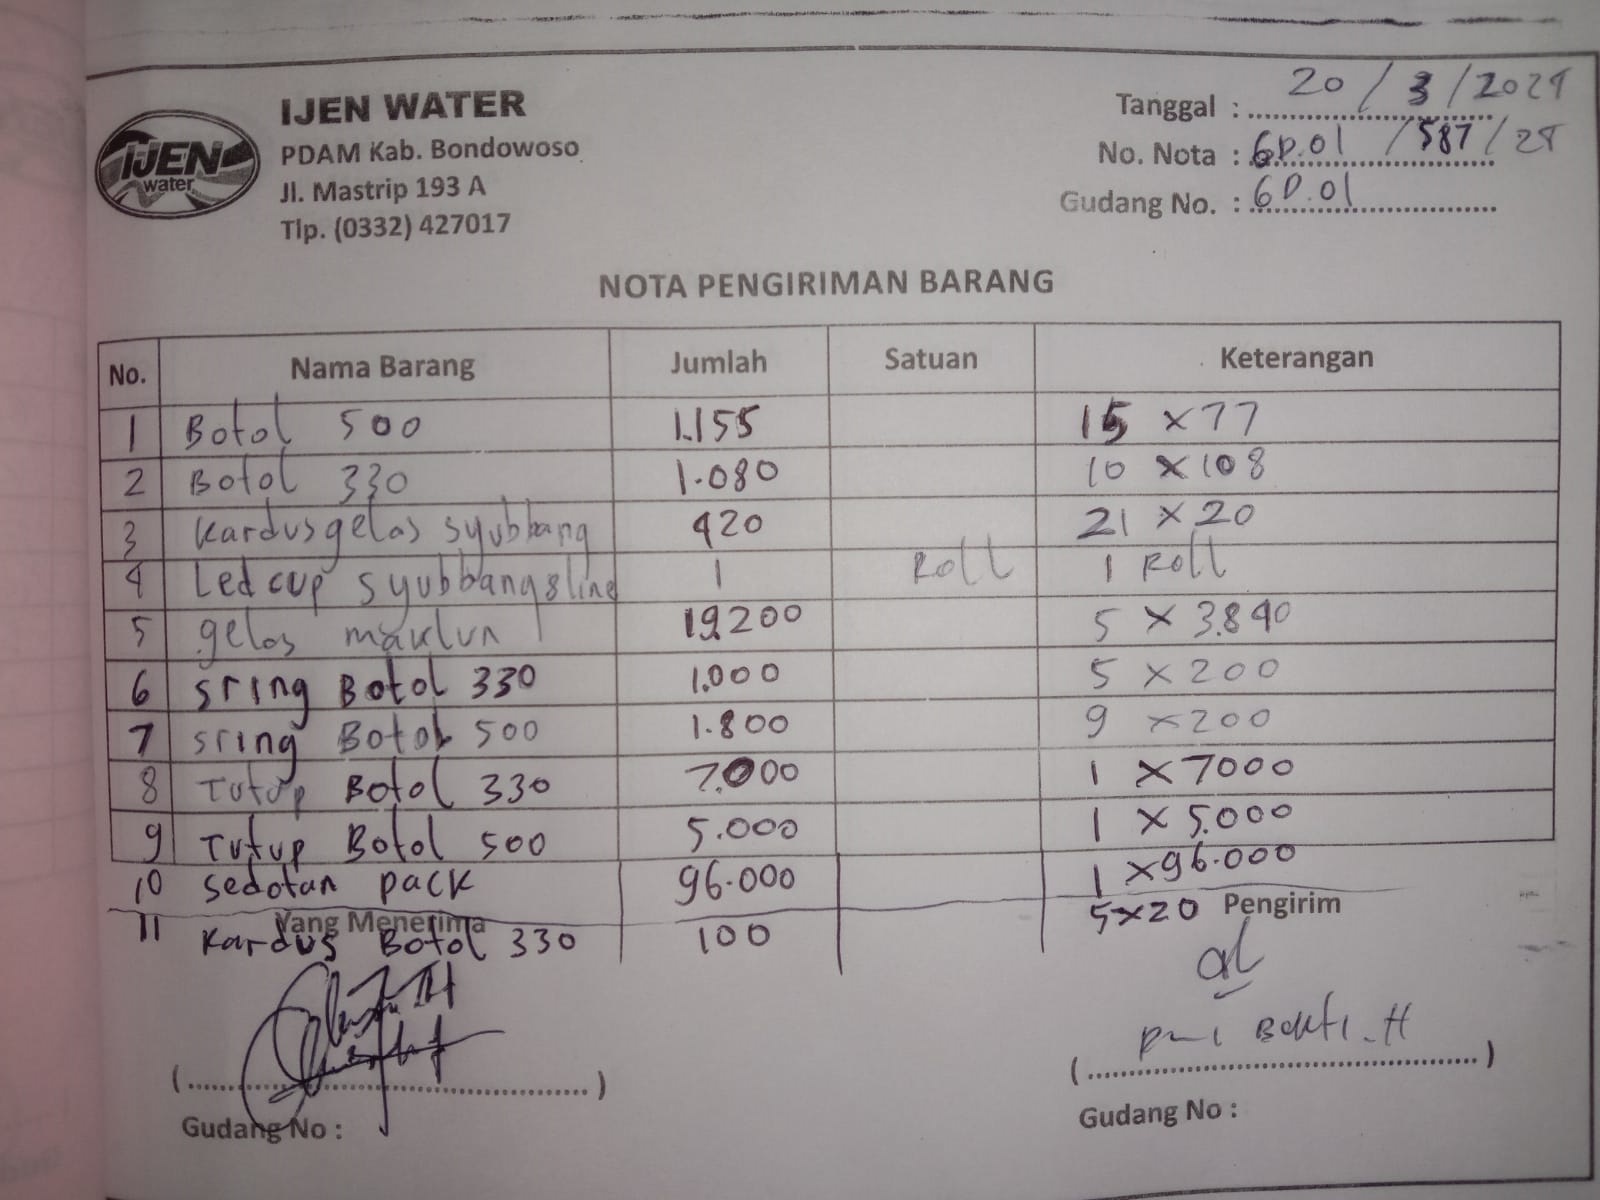 IJEN WATER
PDAM Kab. Bondowoso
Jl. Mastrip 193 A
Tlp. (0332) 427017
IJEN
water
Tanggal : 20 / 3 / 2024
No. Nota : GD.01 / 587 / 24
Gudang No. : GD.01
NOTA PENGIRIMAN BARANG
No. Nama Barang Jumlah Satuan Keterangan
1 Botol 500 1.155 15 x 77
2 Botol 330 1.080 10 x 108
3 Kardus gelas syubbang 420 21 x 20
4 Led cup syubbang 8 line 1 Roll 1 Roll
5 gelas maklun 19200 5 x 3.840
6 sring Botol 330 1.000 5 x 200
7 sring Botol 500 1.800 9 x 200
8 Tutup Botol 330 7.000 1 x 7000
9 Tutup Botol 500 5.000 1 x 5.000
10 sedotan pack 96.000 1 x 96.000
11 Kardus Botol 330 100 5 x 20
Yang Menerima Pengirim
Bakti. H
(........................) (........................)
Gudang No : Gudang No :